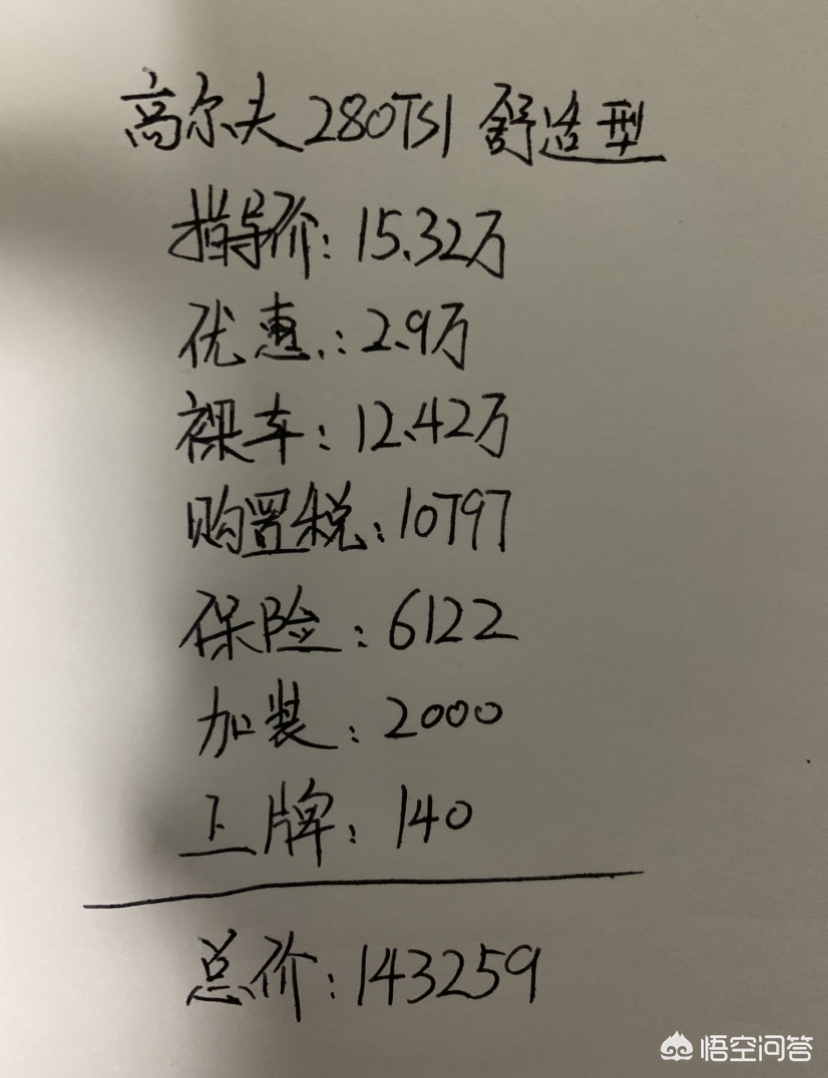 高尔夫280TSI 舒适型
指导价：15.32万
优惠：2.9万
裸车：12.42万
购置税：10797
保险：6122
加装：2000
上牌：140
总价：143259
悟空问答